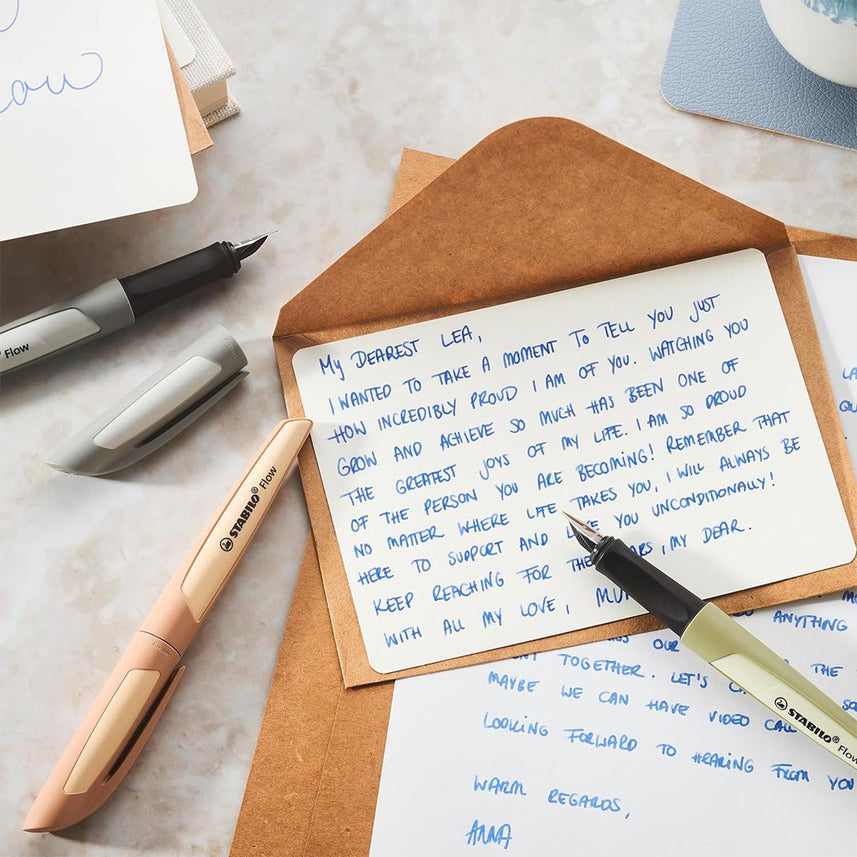 ow
Flow
STABILO® Flow
MY DEAREST LEA,
I WANTED TO TAKE A MOMENT TO TELL YOU JUST
HOW INCREDIBLY PROUD I AM OF YOU. WATCHING YOU
GROW AND ACHIEVE SO MUCH HAS BEEN ONE OF
THE GREATEST JOYS OF MY LIFE. I AM SO PROUD
OF THE PERSON YOU ARE BECOMING! REMEMBER THAT
NO MATTER WHERE LIFE TAKES YOU, I WILL ALWAYS BE
HERE TO SUPPORT AND YOU UNCONDITIONALLY!
KEEP REACHING FOR THE , MY DEAR.
WITH ALL MY LOVE,
STABILO® Flow
ANYTHING
OUR THE
TOGETHER. LET'S
MAYBE WE CAN HAVE VIDEO
LOOKING FORWARD TO HEARING FROM YOU
WARM REGARDS,
ANNA